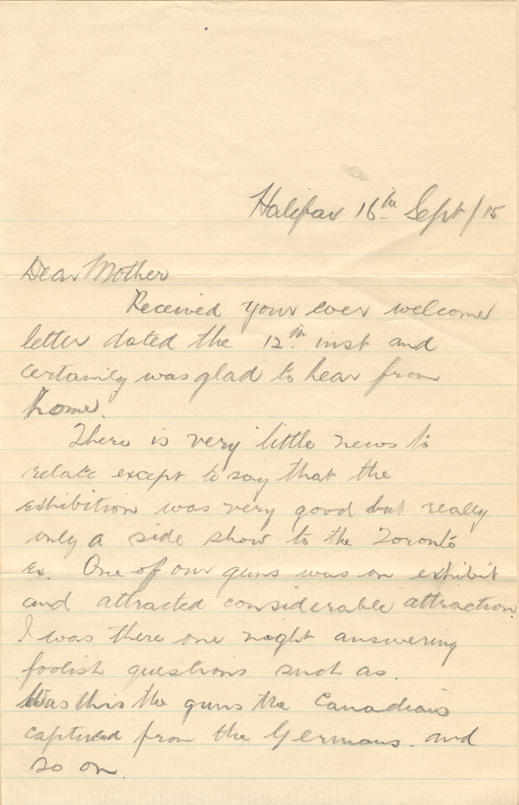 Halifax 16th Sept/15
Dear Mother
Received your ever welcome
letter dated the 12th inst and
certainly was glad to hear from
home.
There is very little news to
relate except to say that the
exhibition was very good but really
only a side show to the Toronto
Ex. One of our guns was on exhibit
and attracted considerable attraction.
I was there one night answering
foolish questions such as.
Was this the guns the Canadians
captured from the Germans. and
so on.